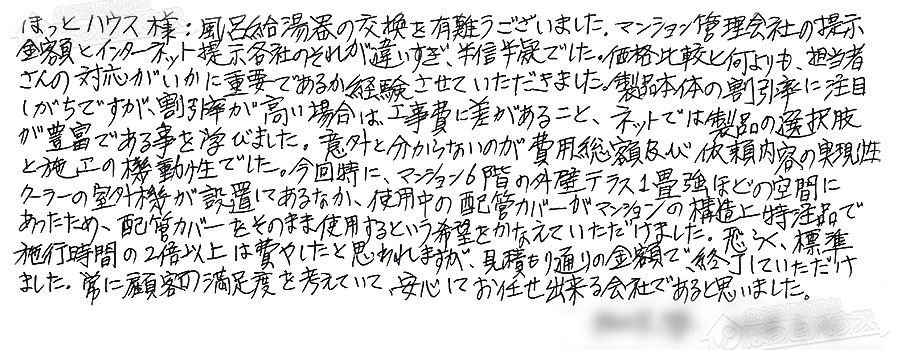 ほっとハウス様:風呂給湯器の交換を有難うございました。マンション管理会社の提示
金額とインターネット提示各社のそれが違いすぎ、半信半疑でした。価格比較と何よりも、担当者
さんの対応がいかに重要であるか経験させていただきました。製品本体の割引率に注目
しがちですが、割引率が高い場合は、工事費に差があること、ネットでは製品の選択肢
が豊富である事を学びました。意外と分からないのが費用総額及び依頼内容の実現性
と施工の機動性でした。今回特に、マンション6階の外壁テラス1畳強ほどの空間に
クーラーの室外機が設置してあるなか、使用中の配管カバーがマンションの構造上特注品で
あったため、配管カバーをそのまま使用するという希望をかなえていただけました。恐らく、標準
施行時間の2倍以上は費やしたと思われますが、見積もり通りの金額で、終了していただけ
ました。常に顧客の満足度を考えていて、安心してお任せ出来る会社であると思いました。